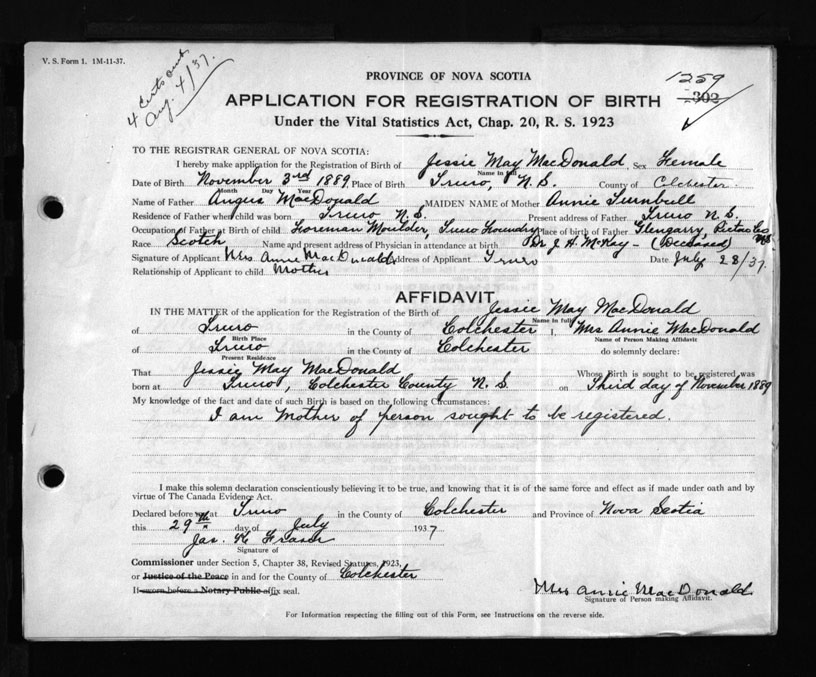 V. S. Form 1. 1M-11-37.
4 certs out
Aug. 4/37.
1259
302
PROVINCE OF NOVA SCOTIA
APPLICATION FOR REGISTRATION OF BIRTH
Under the Vital Statistics Act, Chap. 20, R. S. 1923
TO THE REGISTRAR GENERAL OF NOVA SCOTIA:
I hereby make application for the Registration of Birth of Jessie May MacDonald, Sex Female
Name in full
Date of Birth November 3rd 1889. Place of Birth Truro, N. S. County of Colchester.
Month Day Year
Name of Father Angus MacDonald MAIDEN NAME of Mother Annie Turnbull
Residence of Father when child was born Truro N. S. Present address of Father Truro N. S.
Occupation of Father at Birth of child Foreman Moulder, Truro Foundry Place of birth of Father Glengarry, Pictou Co. N.S.
Race Scotch Name and present address of Physician in attendance at birth Dr J. H. McKay - (Deceased)
Signature of Applicant Mrs Annie MacDonald Address of Applicant Truro Date July 28/37.
Relationship of Applicant to child Mother
AFFIDAVIT
IN THE MATTER of the application for the Registration of the Birth of Jessie May MacDonald
Name in full
of Truro in the County of Colchester I, Mrs Annie MacDonald
Birth Place Name of Person Making Affidavit
of Truro in the County of Colchester do solemnly declare:
Present Residence
That Jessie May MacDonald Whose Birth is sought to be registered was
born at Truro, Colchester County N. S. on Third day of November 1889
My knowledge of the fact and date of such Birth is based on the following Circumstances:
I am Mother of person sought to be registered.
I make this solemn declaration conscientiously believing it to be true, and knowing that it is of the same force and effect as if made under oath and by
virtue of The Canada Evidence Act.
Declared before me at Truro in the County of Colchester and Province of Nova Scotia
this 29th day of July 1937
Jas. K Fraser
Signature of
Commissioner under Section 5, Chapter 38, Revised Statutes, 1923,
or Justice of the Peace in and for the County of Colchester
If sworn before a Notary Public affix seal.
Mrs Annie MacDonald
Signature of Person making Affidavit.
For Information respecting the filling out of this Form, see Instructions on the reverse side.